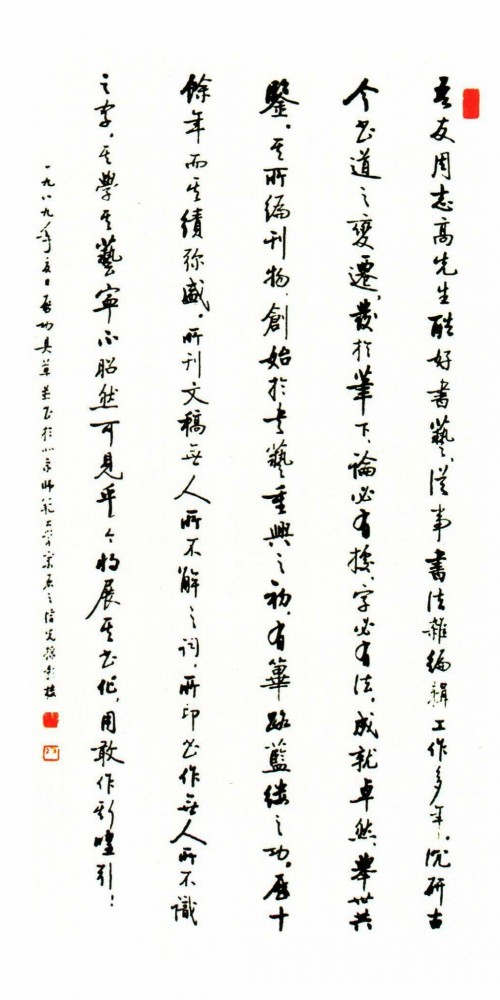 吾友周志高先生酷好書藝，從事書法雜編輯工作多年。沉研古
今书道之變遷，發於筆下，論必有據，字必有法，成就卓然，舉世共
鑒。其所編刊物，創始於书藝重興之初，有篳路藍縷之功。歷十
餘年而其績弥盛。所刊文稿無人所不解之詞，所印书作無人所不識
之字。其學其藝寧不昭然可見乎？今將展其书作，用敢作斯喤引！
一九八九年夏日啟功具草並书於北京師範大學宗居之